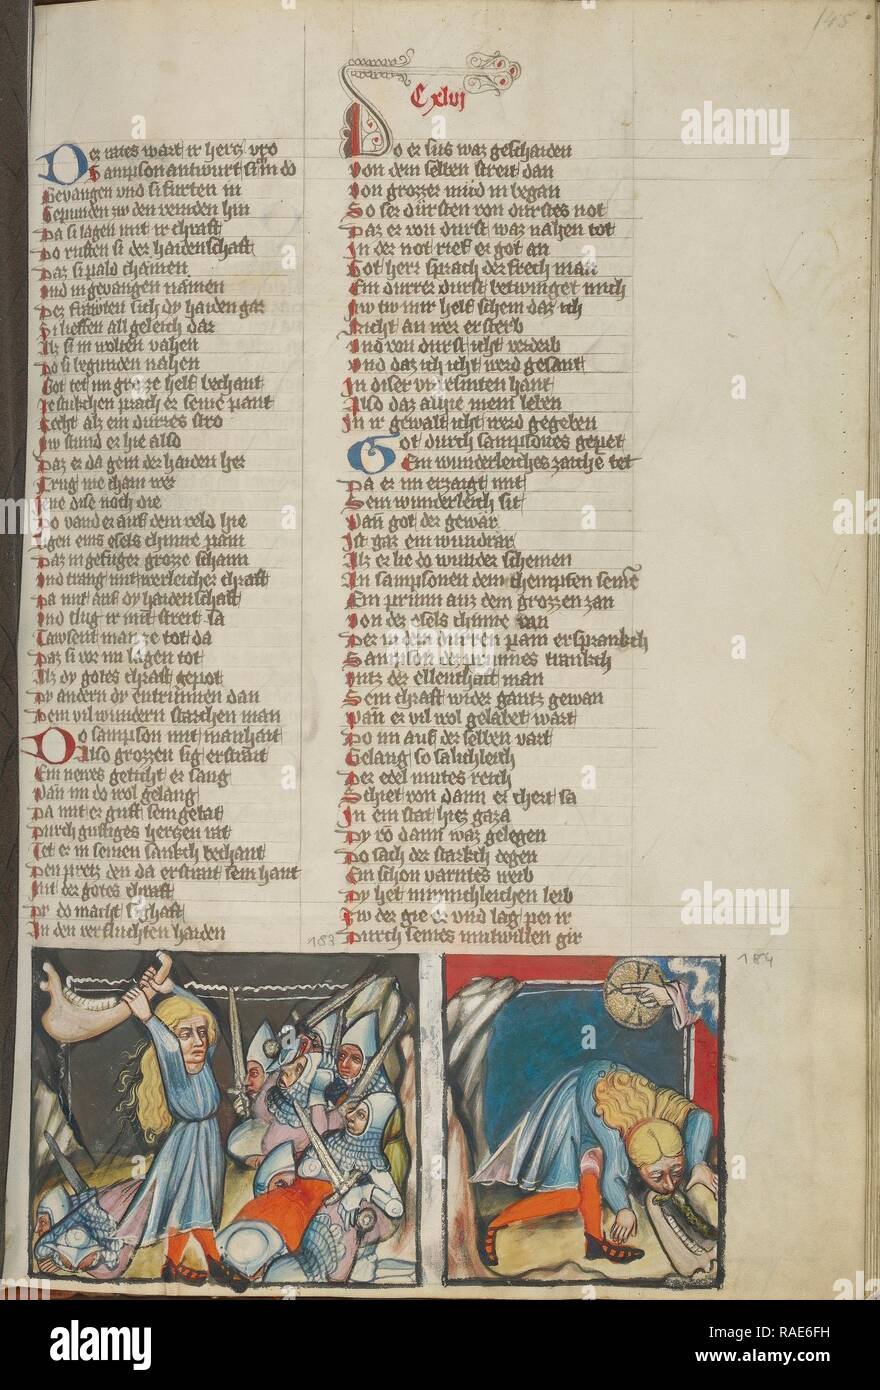 145
Cxlvj
Der rates wart ir hercz vro
Sampson antwurt si in do
Gevangen vnd si furten in
Gepunden zw den veinden hin
Da si lagen mit ir chraft
Do rufften si der haidenschaft
Daz si pald chamen
Vnd in gevangen namen
Der frawten sich dy haiden gar
Si lieffen all geleich dar
Alz si in wolten vahen
Do si begunden nahen
Got tet im grozze helf bechant
Je strikchen prach er seine pant
Recht alz ein durres stro
Nw stund er hie also
Daz er da gein der haiden her
Trug nie chain wer
Jene dise noch die
Do vand er auf dem veld hie
Ligen eins esels chinne pain
Daz in gefuger grozze schain
Vnd twang mit werleicher chraft
Da mit auf dy haidenschaft
Vnd slug ir mit streit sa
Tawsent man ze tot da
Daz si vor im lagen tot
Alz dy gotes chraft gepot
Dy andern dy entrunnen dan
Dem vil wundern starchen man
Do sampson mit manhait
Also grozzen sig erstrait
Ein newes geticht er sang
Wan im do wol gelang
Da mit er guff sein getat
Durch gustiges herczen rat
Tet er in seinen sankch bechant
Den preis den da erstrait sein hant
Mit der gotes chraft
Dy do macht sighaft
In den verfluchten haiden
Do er sus waz geschaiden
Von dem selben streit dan
Von grozzer müd in began
So ser dürsten von durstes not
Daz er von durst waz nahen tot
In der not rief er got an
Got herr sprach der frech man
Ein durrer durst betwinget mich
Nw tw mir helf schein daz ich
Nicht an wer ersterb
Vnd von durst icht verderb
Vnd daz ich icht werd gesant
In diser vnbesniten hant
Also daz auhie mein leben
In ir gewalt icht werd gegeben
Got durch sampsones gepet
Ein wunderleiches zaichen tet
Da er im erzaigt mit
Sein wunderleich sit
Wan got der gewär
Ist gar ein wundrär
Alz er lie do wunder scheinen
An sampsonen dem chempfen seine
Ein prunn auz dem grozzen zan
Von der esels chinne ran
Der in dem dürren pain ersprankch
Sampson dez prunnes trankch
Vntz der ellenthaft man
Sein chraft wider gantz gewan
Wan er vil wol gelabet wart
Do im auf der selben vart
Gelang so sälichleich
Der edel mutes reich
Schiet von dann er chert sa
In ein stat hiez gaza
Dy vo dann waz gelegen
Do sach der starkch degen
Ein schon varntes weib
Dy het minnichleichen leib
Zw der gie er vnd lag pei ir
Durch seines mutwillen gir
183
184
alamy
alamy stock photo
Image ID: RAE6FH
www.alamy.com